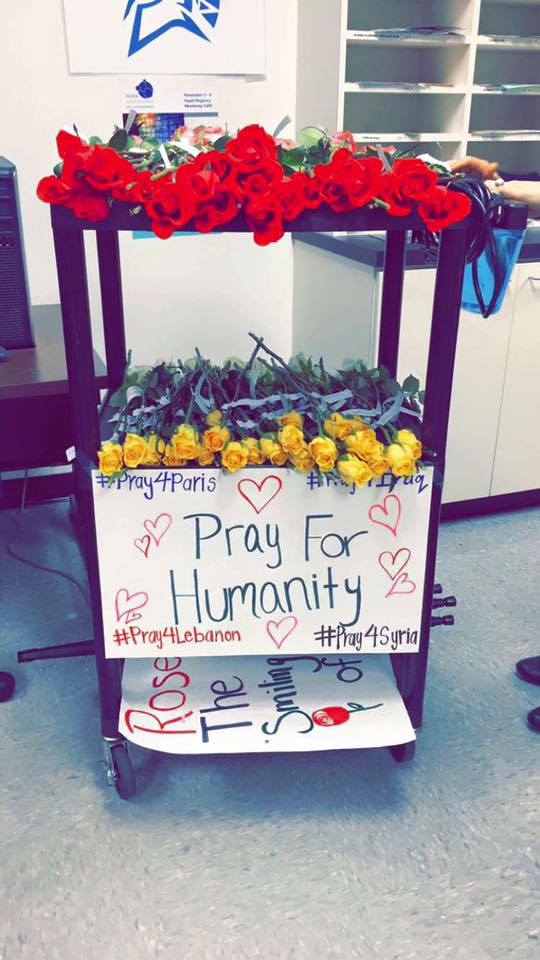 November 5 - 8
Hyatt Regency
#Pray4Paris #Pray4Iraq
Pray For
Humanity
#Pray4Lebanon #Pray4Syria
Rose
The
Smiling
of